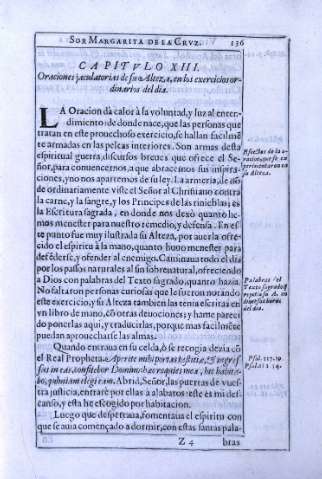 SOR MARGARITA DE LA CRVZ. 136
CAPITVLO XIII.
Oraciones jaculatorias de su Alteza, en los exercicios or-
dinarios del dia.
LA Oracion dà calor à la voluntad, y luz al enten-
dimiento; de donde nace, que las personas que
tratan en este prouechoso exercicio, se hallan facilmẽ
te armadas en las peleas interiores. Son armas desta
espiritual guerra, discursos breues que ofrece el Se-
ñor, para comouernos, a que abracemos sus inspira-
ciones, y no nos apartemos de su ley. La armeria, de dõ
de ordinariamente viste el Señor al Christiano contra
la carne, y la sangre, y los Principes de las tinieblas; es
la Escritura sagrada, en donde nos dexò quanto he-
mos menester para nuestro remedio, y defensa. En es-
te punto fue muy ilustrada su Alteza, por auerla ofre-
cido el espiritu à la mano, quanto huuo menester para
defẽderse, y ofender al enemigo. Caminaua todo el dia
por los passos naturales al fin sobrenatural, ofreciendo
à Dios con palabras del Texto sagrado, quanto hazia.
No faltaron personas curiosas que le fueron notando
este exercicio, y su Alteza tambien las tenia escritas en
vn libro de mano, cõ otras deuociones; y hame pareci
do ponerlas aqui, y traducirlas, porque mas facilmẽte
puedan aprouecharse las almas.
Quando entraua en su celda, ò se recogia dezia cõ el
Real Propheta: Aperite mihi portas iustitiæ, & ingres-
sus in eas, confitebor Domino: hæc requies mea, hic habita-
bo, quoniam elegi eam. Abrid, Señor, las puertas de vues-
tra justicia, entrarè por ellas à alabaros: este es mi des-
canso, y esta he escogido por habitacion.
Luego que despertaua, fomentaua el espiritu con
que se auia començado a dormir, con estas santas pala-
Z 4 bras
Palabras del
Texto sagrado q̃
del dia.
Psal. 117. 19.